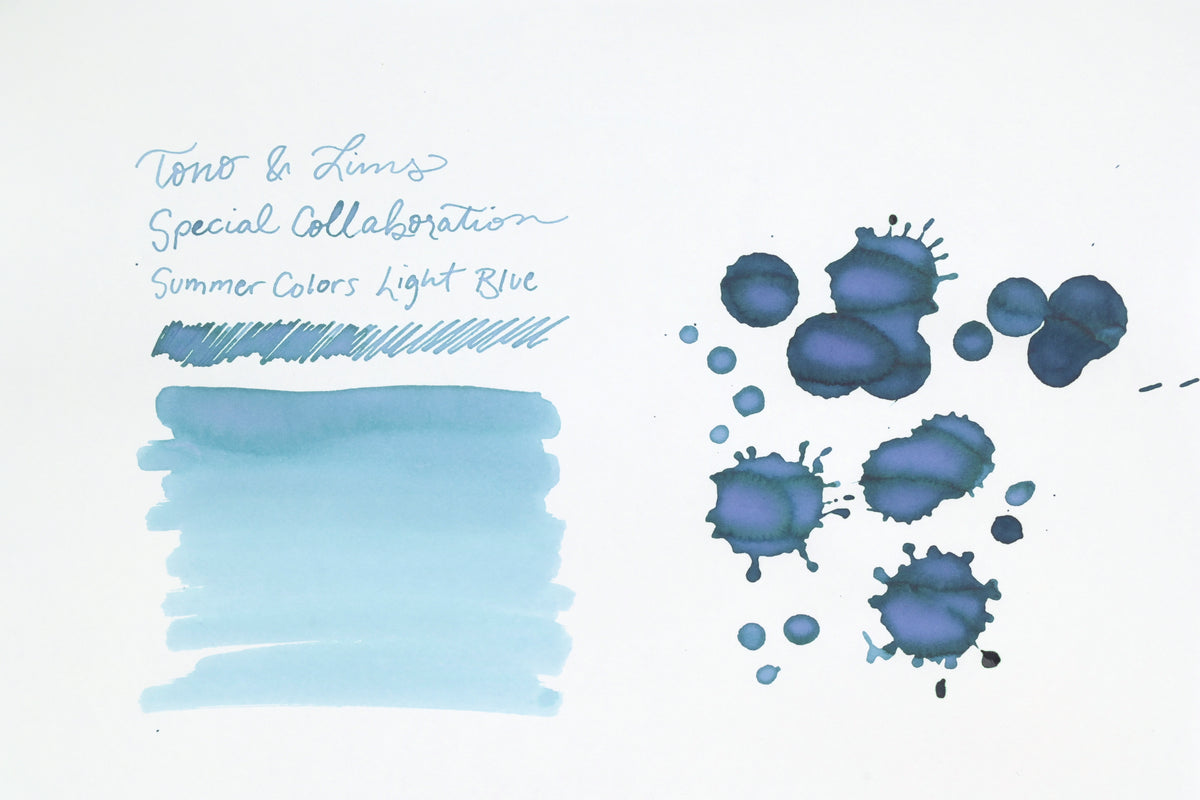 Tono & Lims
Special Collaboration
Summer Colors Light Blue